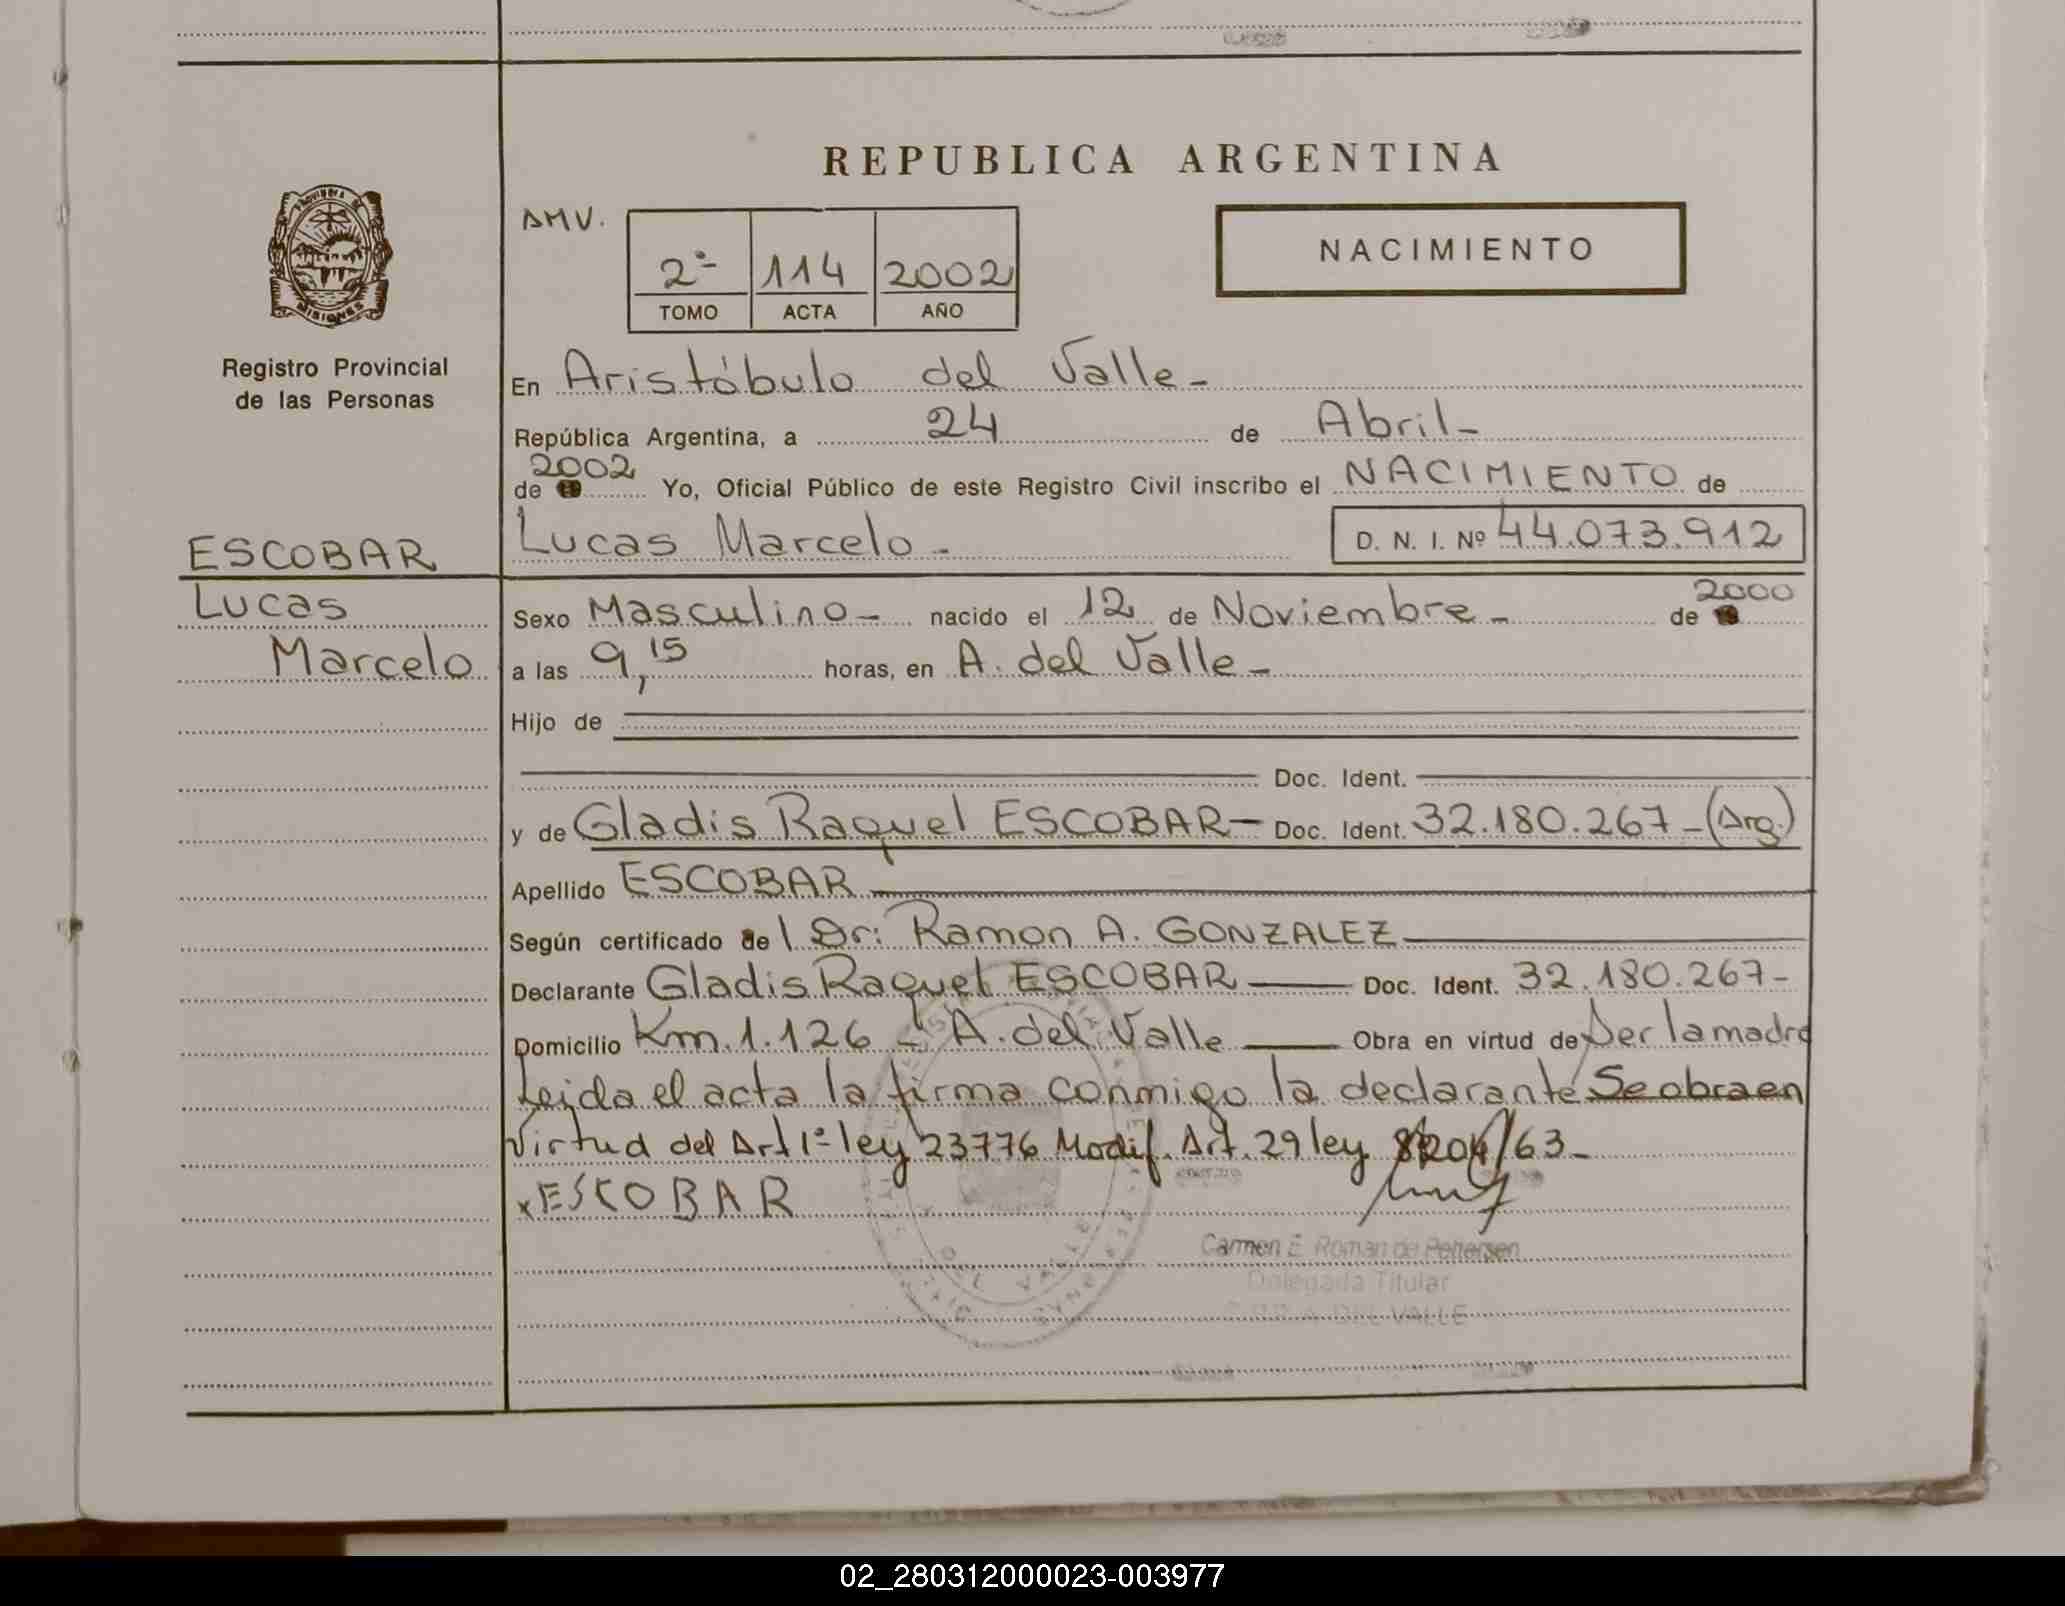 REPUBLICA ARGENTINA
PROVINCIA DE
MISIONES
Registro Provincial
de las Personas
AMV.
2º 114 2002
TOMO ACTA AÑO
NACIMIENTO
En Aristóbulo del Valle-
República Argentina, a 24 de Abril-
de 2002 Yo, Oficial Público de este Registro Civil inscribo el NACIMIENTO de
Lucas Marcelo - D. N. I. Nº 44.073.912
ESCOBAR
Lucas
Marcelo
Sexo Masculino- nacido el 12 de Noviembre- de 2000
a las 9,15 horas, en A. del Valle-
Hijo de
Doc. Ident.
y de Gladis Raquel ESCOBAR- Doc. Ident. 32.180.267-(Arg.)
Apellido ESCOBAR
Según certificado del Dr: Ramon A. GONZALEZ
Declarante Gladis Raquel ESCOBAR Doc. Ident. 32.180.267-
Domicilio Km.1.126 - A. del Valle Obra en virtud de Ser la madre
Leida el acta la firma conmigo la declarante Se obra en
Virtud del Art 1º ley 23776 Modif. Art. 29 ley 8204/63-
x ESCOBAR
Carmen E. Roman de Pettersen
Delegada Titular
A. DEL VALLE
02_280312000023-003977